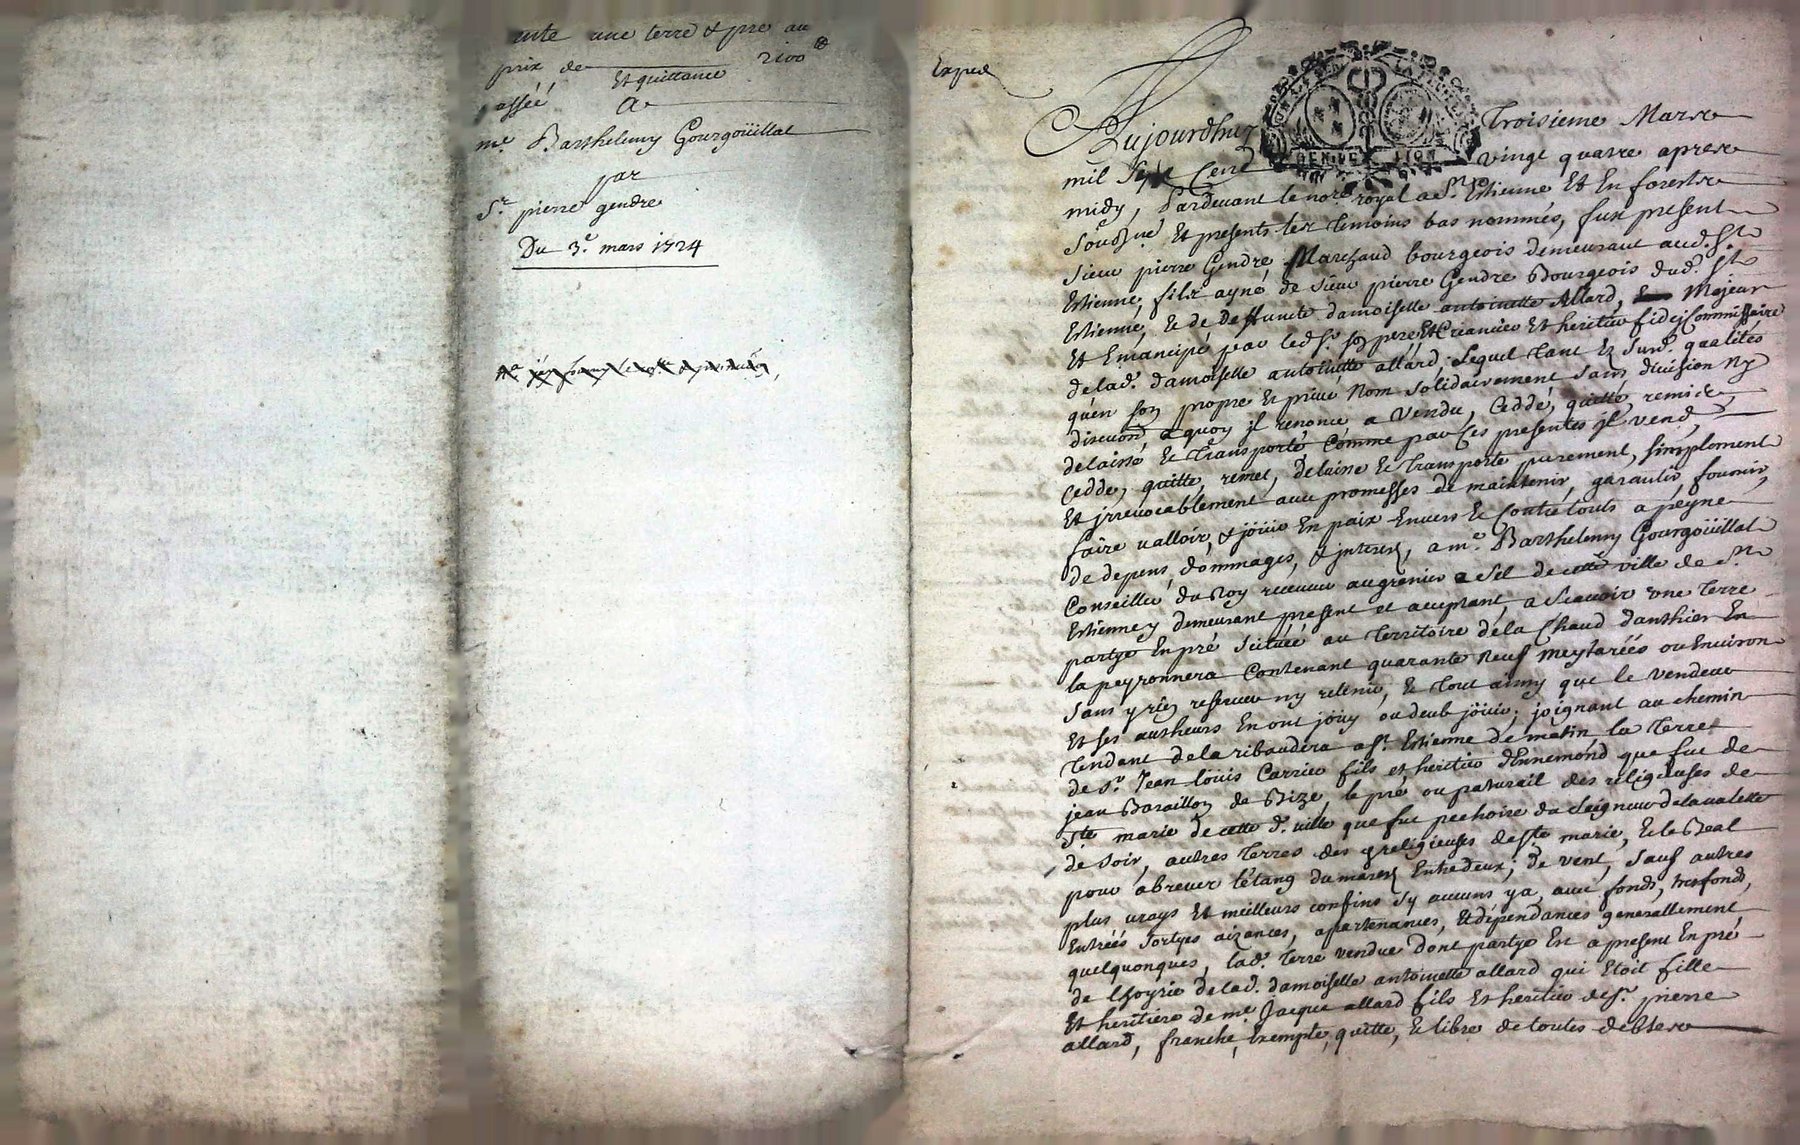 ente une terre & pré au
prix de 2100 #
Et quittance
assée A
me. Barthelemy Gourgoüillat
par
Sr. pierre gendre
Du 3e. mars 1724
Exped
Aujourdhuy Troisieme Mars
mil Sept Cent vingt quatre apres
midy, Pardevant le nore. royal a St. Estienne Et En forests
Soubzné. Et presents les Temoins bas nommés, fut present
Sieur pierre Gendre Marchand bourgeois demeurant aud. St.
Estienne, fils ayné de Sieur pierre Gendre Bourgeois dud. St.
Estienne, & de Deffunte damoiselle antoinette Allard, Majeur
Et Emancipé par led. Sr. son pere, Et Creancier Et heritier fideicommissaire
de lad. damoiselle antoinette allard, Lequel Tant Ez Susd. qualités
quen son propre Et privé Nom solidairement sans division Ny
discution, a quoy il renonce, a Vendu, Ceddé, quitté, remis,
delaissé Et Transporté, Comme par Ces presentes il vend,
Cedde, quitte, remet, delaisse & Transporte purement, simplement
Et irrevocablement avec promesses de maintenir, garantir, fournir,
faire valloir, & joüir En paix Envers & Contre touts a peyne
de depens, dommages, & interests, a me. Barthelemy Gourgoüillat
Conseiller du Roy receveur au grenier a Sel de cette ville de St.
Estienne y demeurant present et acceptant, a Scavoir Une Terre
partye En pré Scituée au Territoire de la Chaud danthier En
la peyronnera Contenant quarante Neuf meytarées ou Environ
Sans y rien reserver ny retenir, & Tout ainsy que le Vendeur
Et ses autheurs En ont joüy ou deub joüir; joignant au chemin
Tendant de la ribaudera a St. Estienne de matin la Terre
de Sr. Jean Louis Carrier fils et heritier dEnnemond que fut de
jean Baraillon de Bize, le pré ou paturail des religieuses de
Ste marie de cette d. ville que fut pechoire du Seigneur de lavalette
de Soir, autres Terres des religieuses de Ste marie, & le Beal
pour abreuer l'étang du marest Entredeux; de vent, Sauf autres
plus vrays Et meilleurs confins s'y aucuns y a, avec fonds, tresfonds,
Entrées Sortyes aizances, apartenances, Et dépendances generallement
quelquonques, lad. Terre vendue dont partye Est a present En pré
de lhoyrie de lad. damoiselle antoinette allard qui Etoit fille
Et heritiere de me. Jacque allard fils Et heritier de Sr. pierre
allard, franche, Exempte, quitte, & libre de toutes debtes